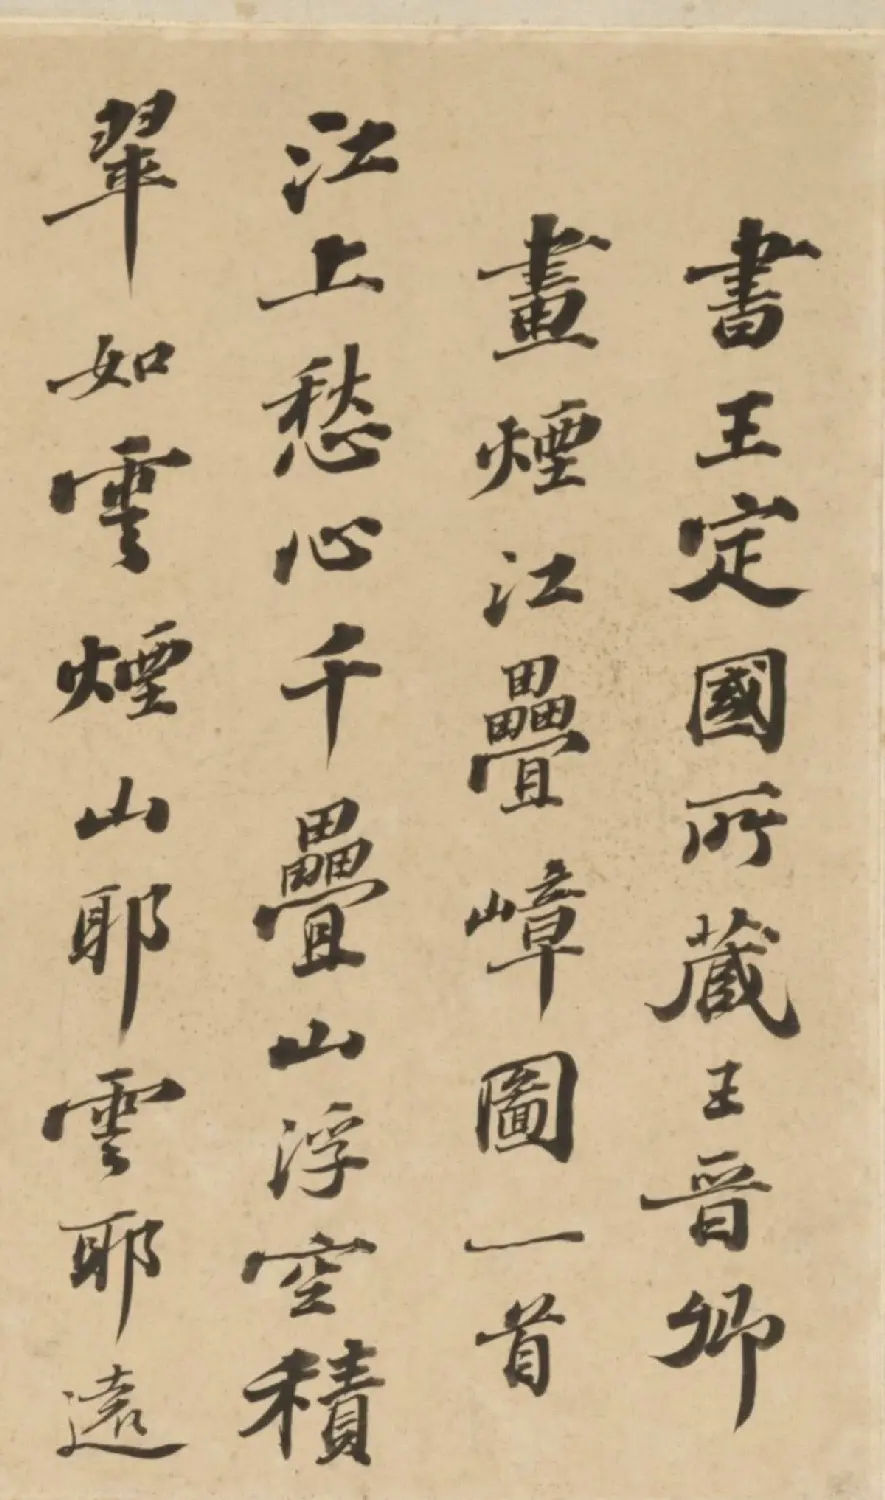 書王定國所藏王晉卿
畫煙江疊嶂圖一首
江上愁心千疊山浮空積
翠如雲煙山耶雲耶遠